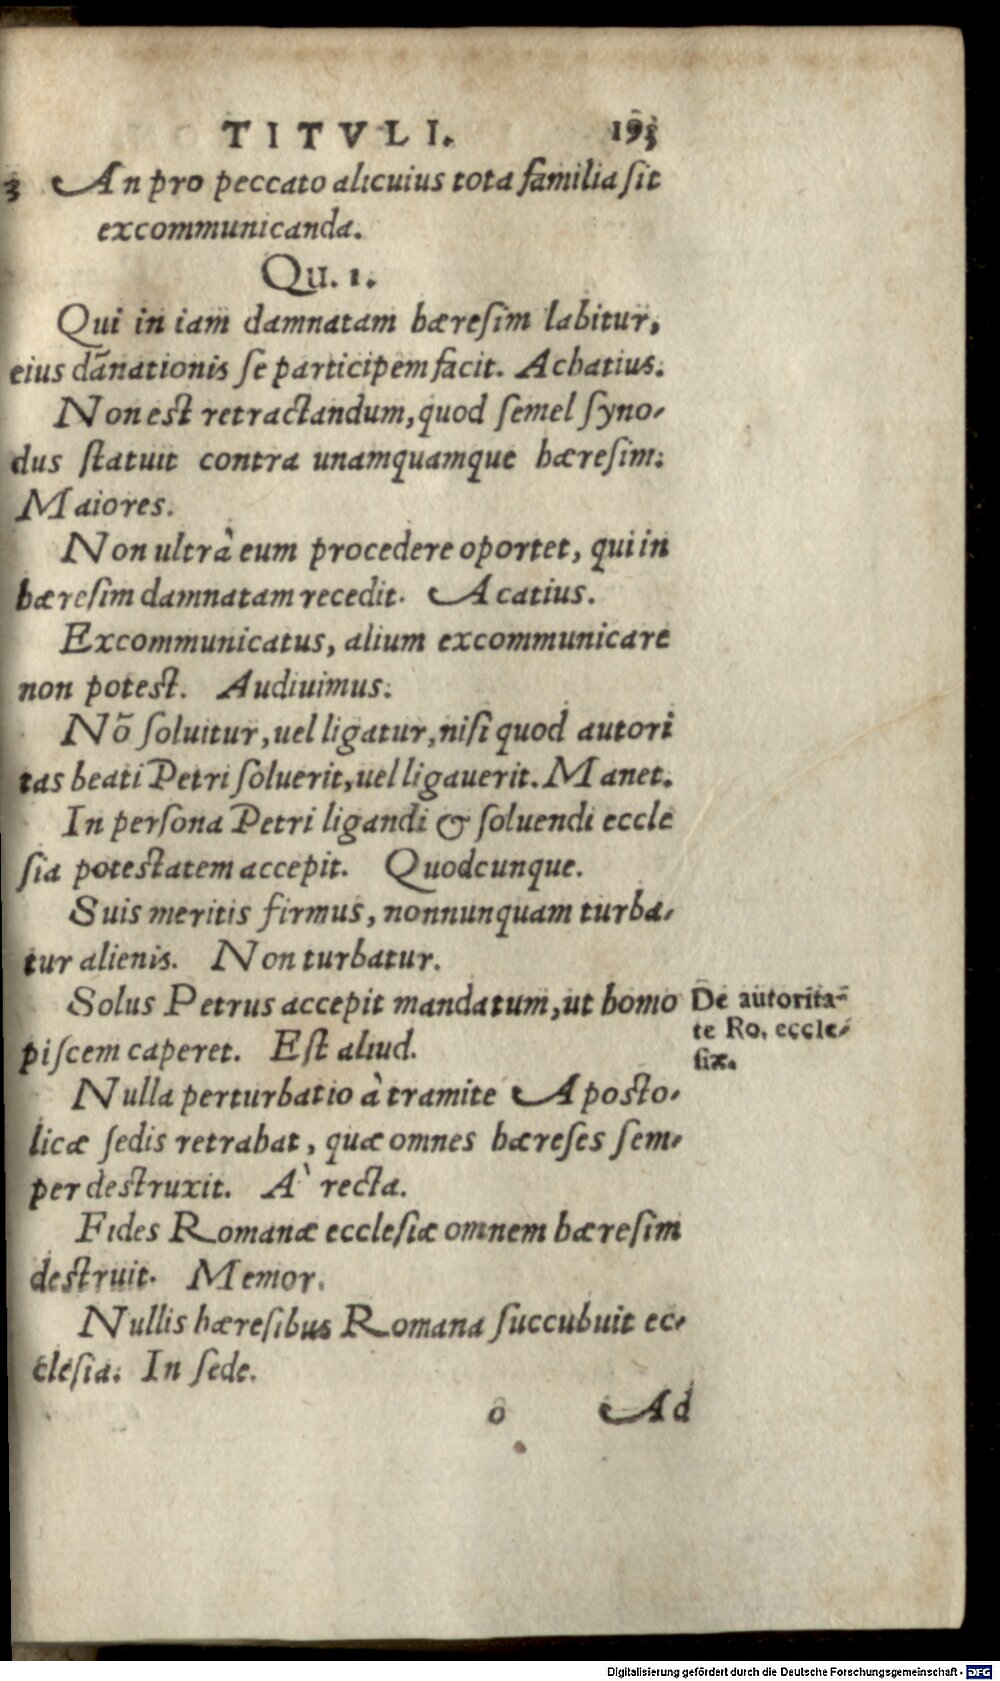 TITVLI. 193
3 An pro peccato alicuius tota familia ſit
excommunicanda.
Qu. 1.
Qui in iam damnatam hæreſim labitur,
eius dānationis ſe participem facit. Achatius.
Non est retractandum, quod ſemel ſyno-
dus ſtatuit contra unamquamque hæreſim.
Maiores.
Non ultrà eum procedere oportet, qui in
hæreſim damnatam recedit. Acatius.
Excommunicatus, alium excommunicare
non potest. Audiuimus.
Nō ſoluitur, uel ligatur, niſi quod autori
tas beati Petri ſoluerit, uel ligauerit. Manet.
In perſona Petri ligandi & ſoluendi eccle
ſia potestatem accepit. Quodcunque.
Suis meritis firmus, nonnunquam turba-
tur alienis. Non turbatur.
Solus Petrus accepit mandatum, ut homo
piſcem caperet. Est aliud.
De autorita-
te Ro. eccle-
ſiæ.
Nulla perturbatio à tramite Aposto-
licæ ſedis retrahat, quæ omnes hæreſes ſem-
per destruxit. A` recta.
Fides Romanæ eccleſiæ omnem hæreſim
destruit. Memor.
Nullis hæreſibus Romana ſuccubuit ec-
cleſia. In ſede.
o Ad
Digitalisierung gefördert durch die Deutsche Forschungsgemeinschaft - DFG